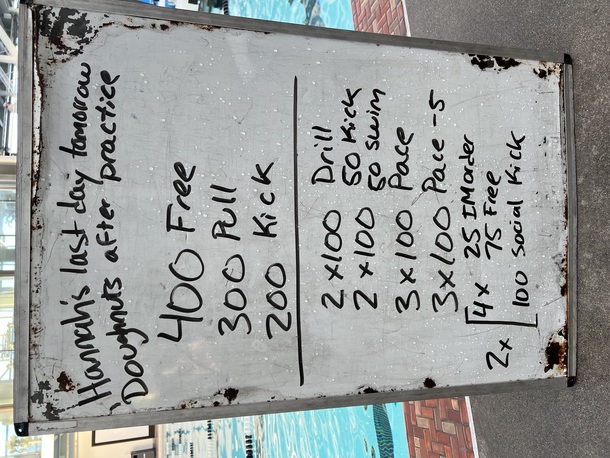 Hannah's last day tomorrow
Doughnuts after practice
400 Free
300 Pull
200 Kick
2 x 100 Drill
2 x 100 50 Kick
50 swim
3 x 100 Pace
3 x 100 Pace - 5
2x [4x 25 IM order
75 Free
100 Social Kick